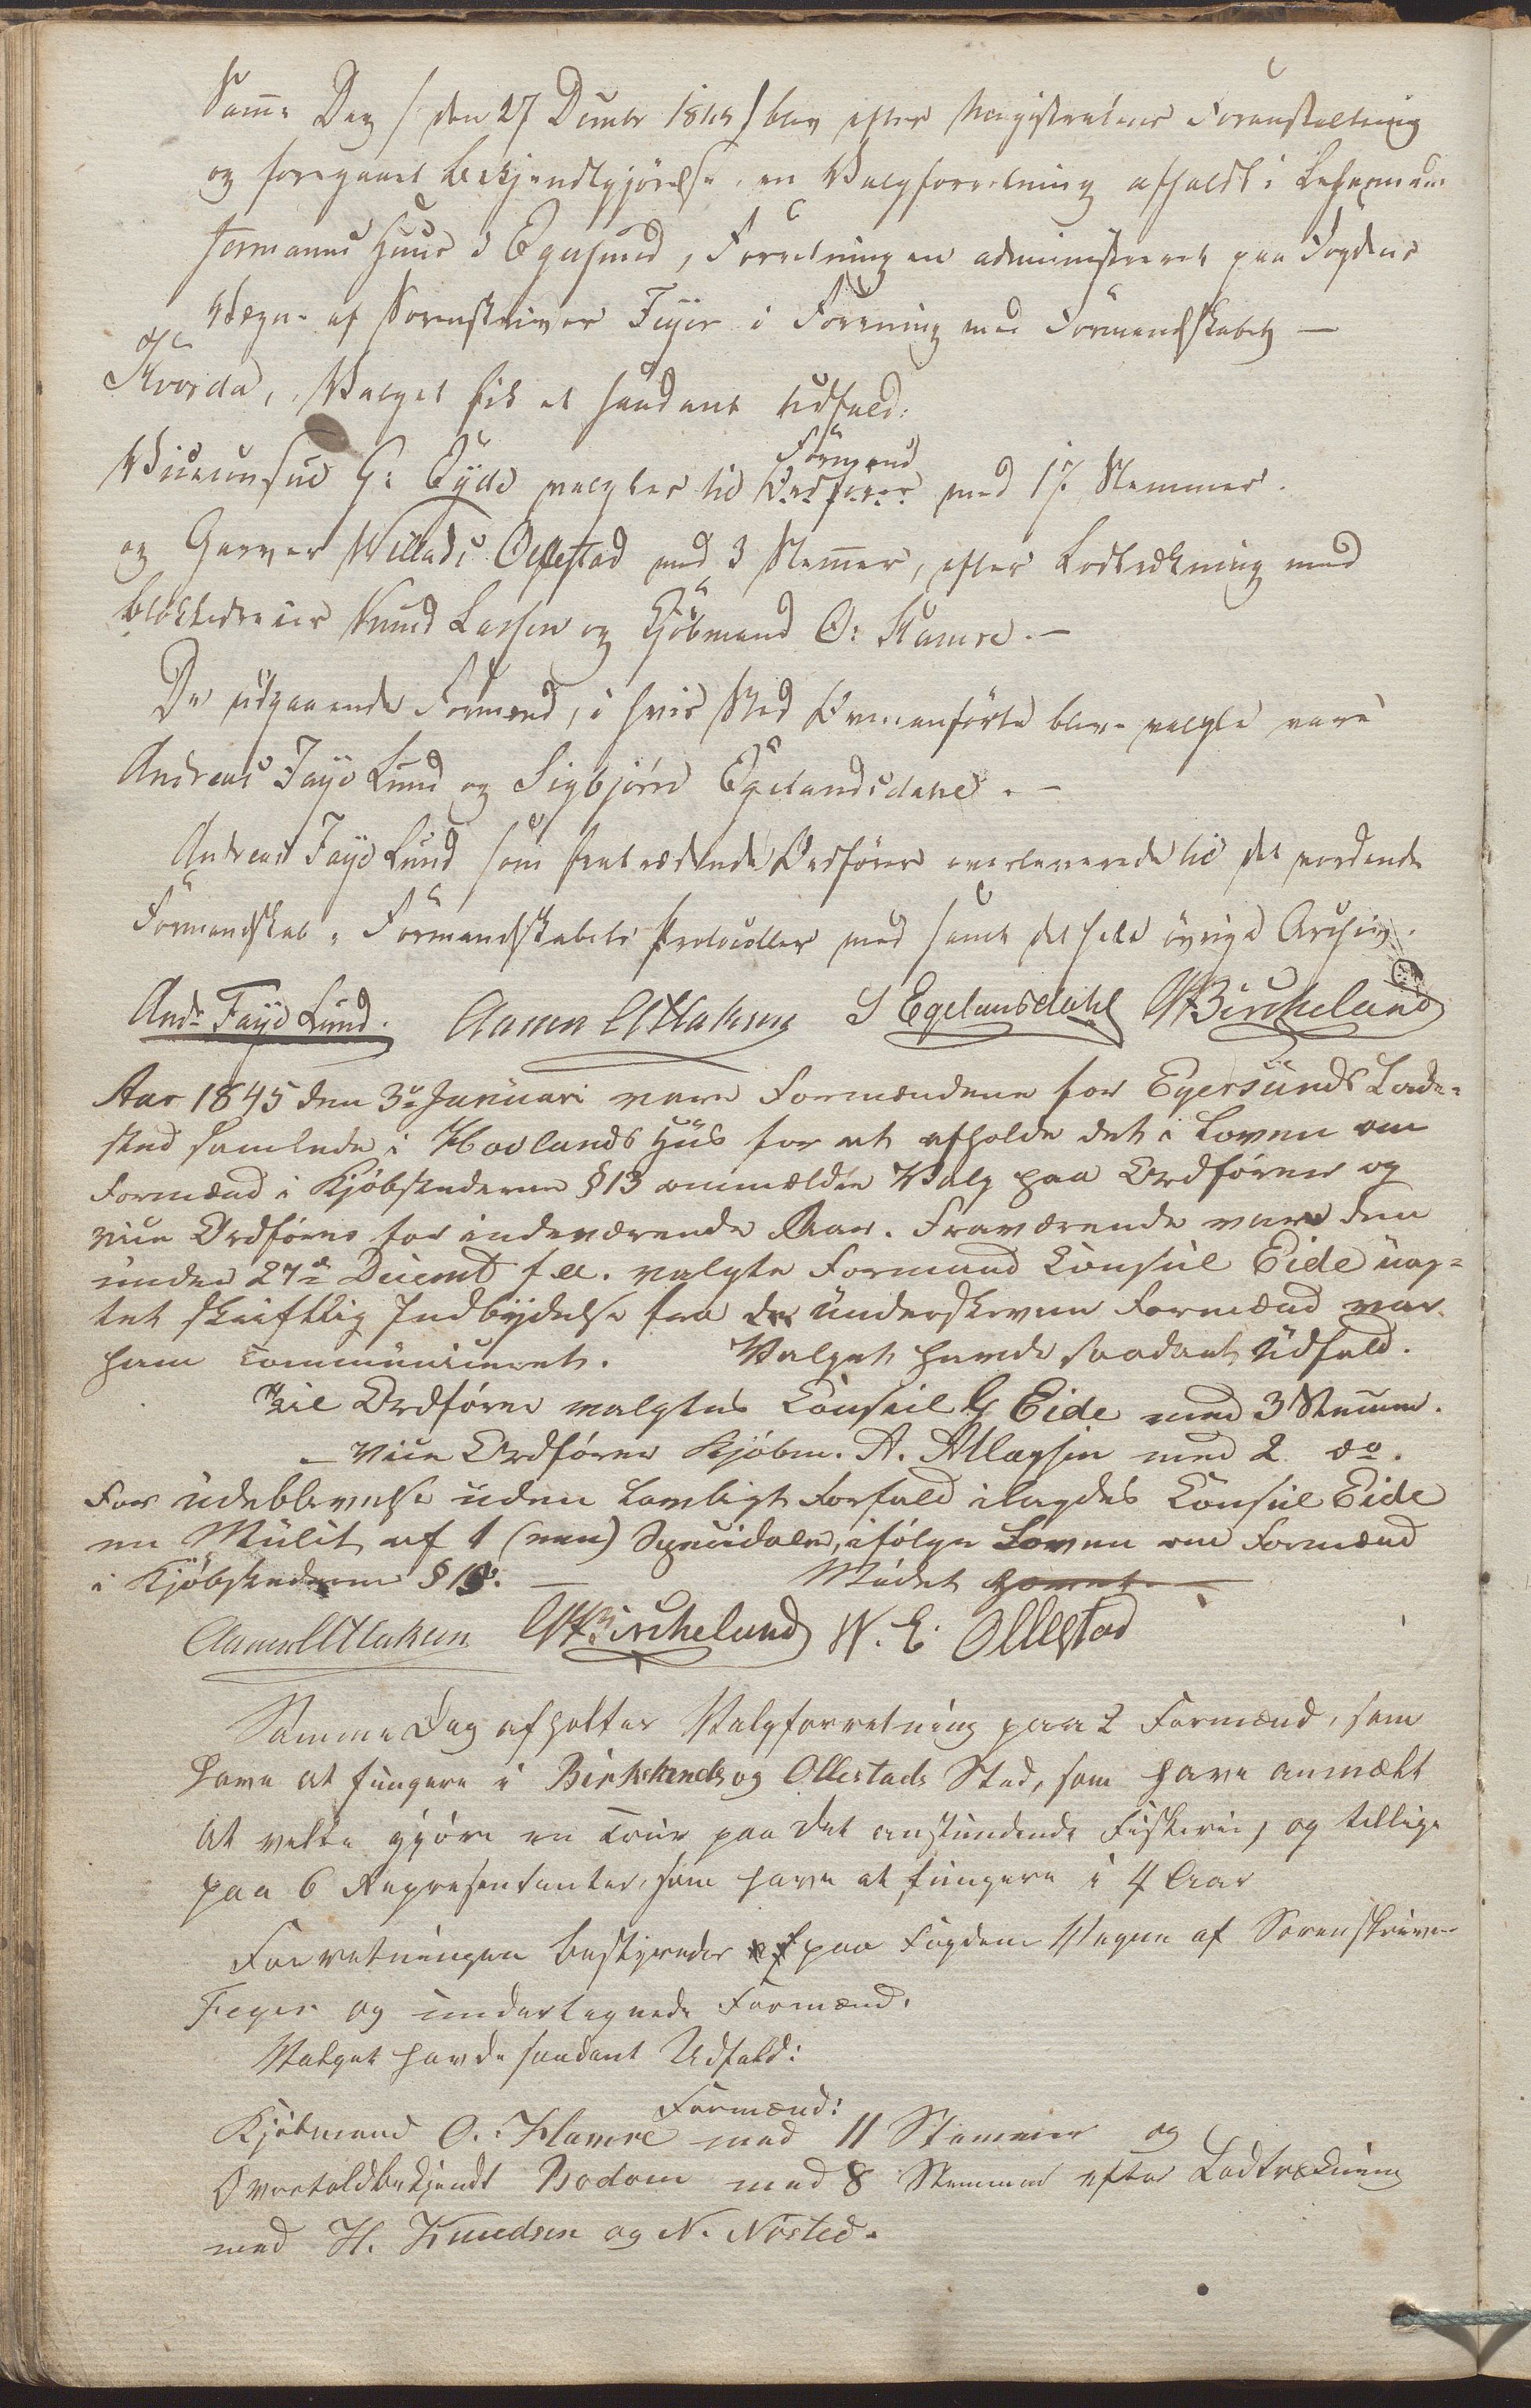 Samme Dag / den 27 Decembr 1844 / blev efter Magistratens Foranstaltning
og foregaaet Bekjendtgjörelse, en Valgforretning afholdt i
Huus i Egersund, Forretningen administreret paa Fogdens
Vegne af Sorenskriver Feyer i Forening med Formandskabet —
Hvorda, Valget fik et saadant Udfald:
Viceconsul G: Eyde valgtes til Ordförer Formand med 17 Stemmer.
og Garver Willads Ollestad med 3 Stemmer, efter Lodtrækning med
Knud Larsen og Kjöbmand O: Hamre. —
De udgaaende Formænd, i hvis Sted Ovenanförte bleve valgte vare
Andreas Faye Lund og Sigbjörn Egelandsdahl. —
Andreas Faye Lund som fratrædende Ordförer overleverede til det vordende
Formandskab, Formandskabets Protocoller med samt det hele övrige Archiv.
Andr Faye Lund. Aanen Atlaksen S Egelandsdahl Birckeland
Aar 1845 den 3de Januari vare Formændene for Egersunds Lade-
sted samlede i Hovlands Huus for at afholde det i Loven om
Formænd i Kjöbstederne § 13 ommældte Valg paa Ordförer og
vice Ordförer for indeværende Aar. Fraværende var den
under 27de Decembr f. A. valgte Formand Consul Eide uag-
tet skriftlig Indbydelse fra de underskrevne Formænd var
ham communiceret. Valget havde saadant Udfald.
Til Ordförer valgtes Consul G Eide med 3 Stemmer.
— Vice Ordförer Kjöbm. A. Atlagsen med 2 do.
For udeblivelse uden lovligt Forfald ilagdes Consul Eide
en Mulct af 1 (een) Speciedaler, ifölge Loven om Formænd
i Kjöbstederne § 19. — Mödet hævet. —
Aanen Atlaksen Birckeland W. E. Ollestad
Samme Dag afholtes Valgforretning paa 2 Formænd, som
have at fungere i Birkelands og Ollestads Sted, som have anmældt
at ville gjöre en Tour paa det anstundende Fiskerie, og tillige
paa 6 Repræsentanter, som have at fungere i 4 Aar
Forretningen bestyredes af paa Fogdens Vegne af Sorenskriver
Feyer og undertegnede Formænd.
Valget havde saadant Udfald:
Formænd:
Kjöbmand O. Hamre med 11 Stemmer og
Overtoldbetjendt Bodom med 8 Stemmer efter Lodtrækning
med H. Knudsen og N. Nösted.